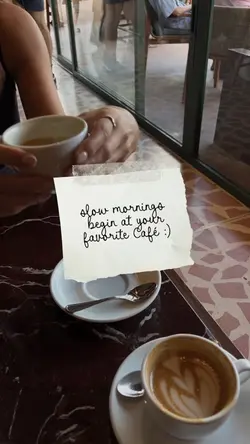 slow mornings
begin at your
favorite Café :)